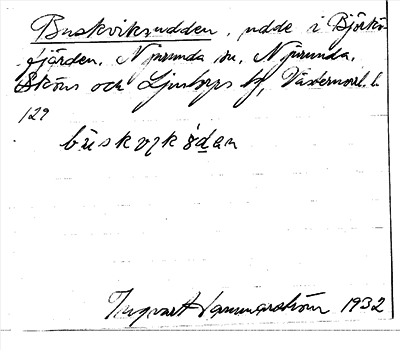 Buskviksudden, udde i Björkö-
fjärden, Njurunda sn, Njurunda,
Sköns och Ljustorps tg, Västernorrl. l.
129
Ingvart Hammarström 1932